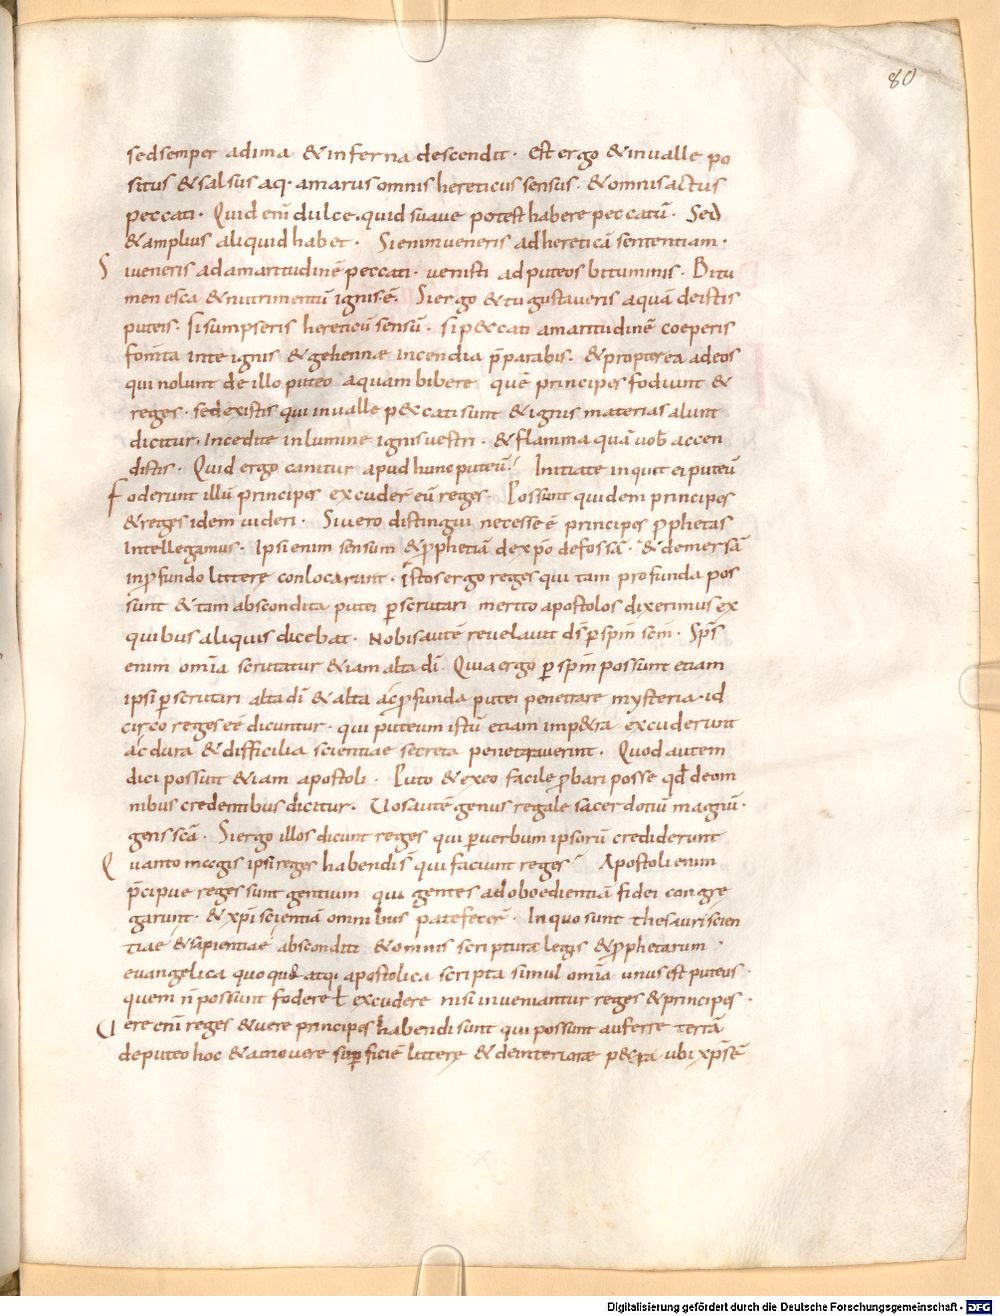 80
sed semper ad ima & inferna descendit · Est ergo & in ualle po
situs & salsus aq· amarus omnis hereticus sensus · & omnis actus
peccati · Quid eni͂ dulce· quid suaue potest habere peccatu͂ · Sed
& amplius aliquid habet · Si enim ueneris ad heretica͂ sententiam ·
S i ueneris ad amaritudine͂ peccati · uenisti ad puteos bituminis · Bitu
men esca & nutrimentu͂ ignis·e͂· Si ergo & tu gustaueris aqua͂ de istis
puteis · si sumpseris hereticu͂ sensu͂ · si p&ccati amaritudine͂ coeperis
fom̅ta in te ignis & gehennae incendia p̅parabis · & propterea ad eos
qui nolunt de illo puteo aquam bibere que͂ principes fodiunt &
reges · sed existis qui in ualle p&ccati sunt & ignis materias alunt
dicitur · Incedite in lumine ignis uestri · & flamma qua͂ uob̅ accen
distis · Quid ergo canitur apud hunc puteu͂? Initiate inquit ei puteu͂
F oderunt illu͂ principes excuder̅ eu͂ reges · Possunt quidem principes
& reges idem uideri · Si uero distingui necesse e͂ principes p̱phetas
intellegamus · Ipsi enim sensum & p̱phetia͂ de xp̅o defossa͂ · & demersa͂
in p̱fundo littere conlocarunt · Istos ergo reges qui tam profunda pos
sunt & tam abscondita putei p̱scrutari merito apostolos dixerimus ex
quibus aliquis dicebat · Nobis aute͂ reuelauit ds̅ p̱ sp̅m sc̅m · Sp̅s
enim om̅ia scrutatur & iam alta di̅ · Quia ergo p̱ sp̅m possunt etiam
ipsi p̱scrutari alta di̅ & alta ac p̱funda putei penetrare mysteria· id
circo reges e͂e dicuntur · qui puteum istu͂ etiam imp&ra excuderunt
ac dura & difficilia scientiae secreta penetrauerint · Quod autem
dici possunt & iam apostoli · Puto & ex eo facile p̱bari posse qd̅ de om
nibus credentibus dicitur · Uos aute͂ genus regale sacerdotiu͂ magnu͂ ·
gens sc̅a · Si ergo illos dicunt reges qui p̱ uerbum ipsoru͂ crediderunt
Q uanto magis ipsi reges habendi s̅ qui faciunt reges? Apostoli enim
p̅cipue reges sunt gentium qui gentes ad oboedientia͂ fidei congre
garunt · & xp̅i scientia͂ omnibus patefecer̅ · In quo sunt thesauri scien
tiae & sapientiae absconditi & omnis scriptura legis & p̱phetarum ·
euangelica quoque atq; apostolica scripta simul om̅ia unus est puteus ·
quem n̅ possunt fodere ł excudere nisi inueniantur reges & principes ·
U ere eni͂ reges & uere principes habendi sunt qui possunt auferre terra͂
de puteo hoc & amouere sup̱ficie͂ littere & de interiorae p&ra ubi xp̅s e͂
Digitalisierung gefördert durch die Deutsche Forschungsgemeinschaft - DFG